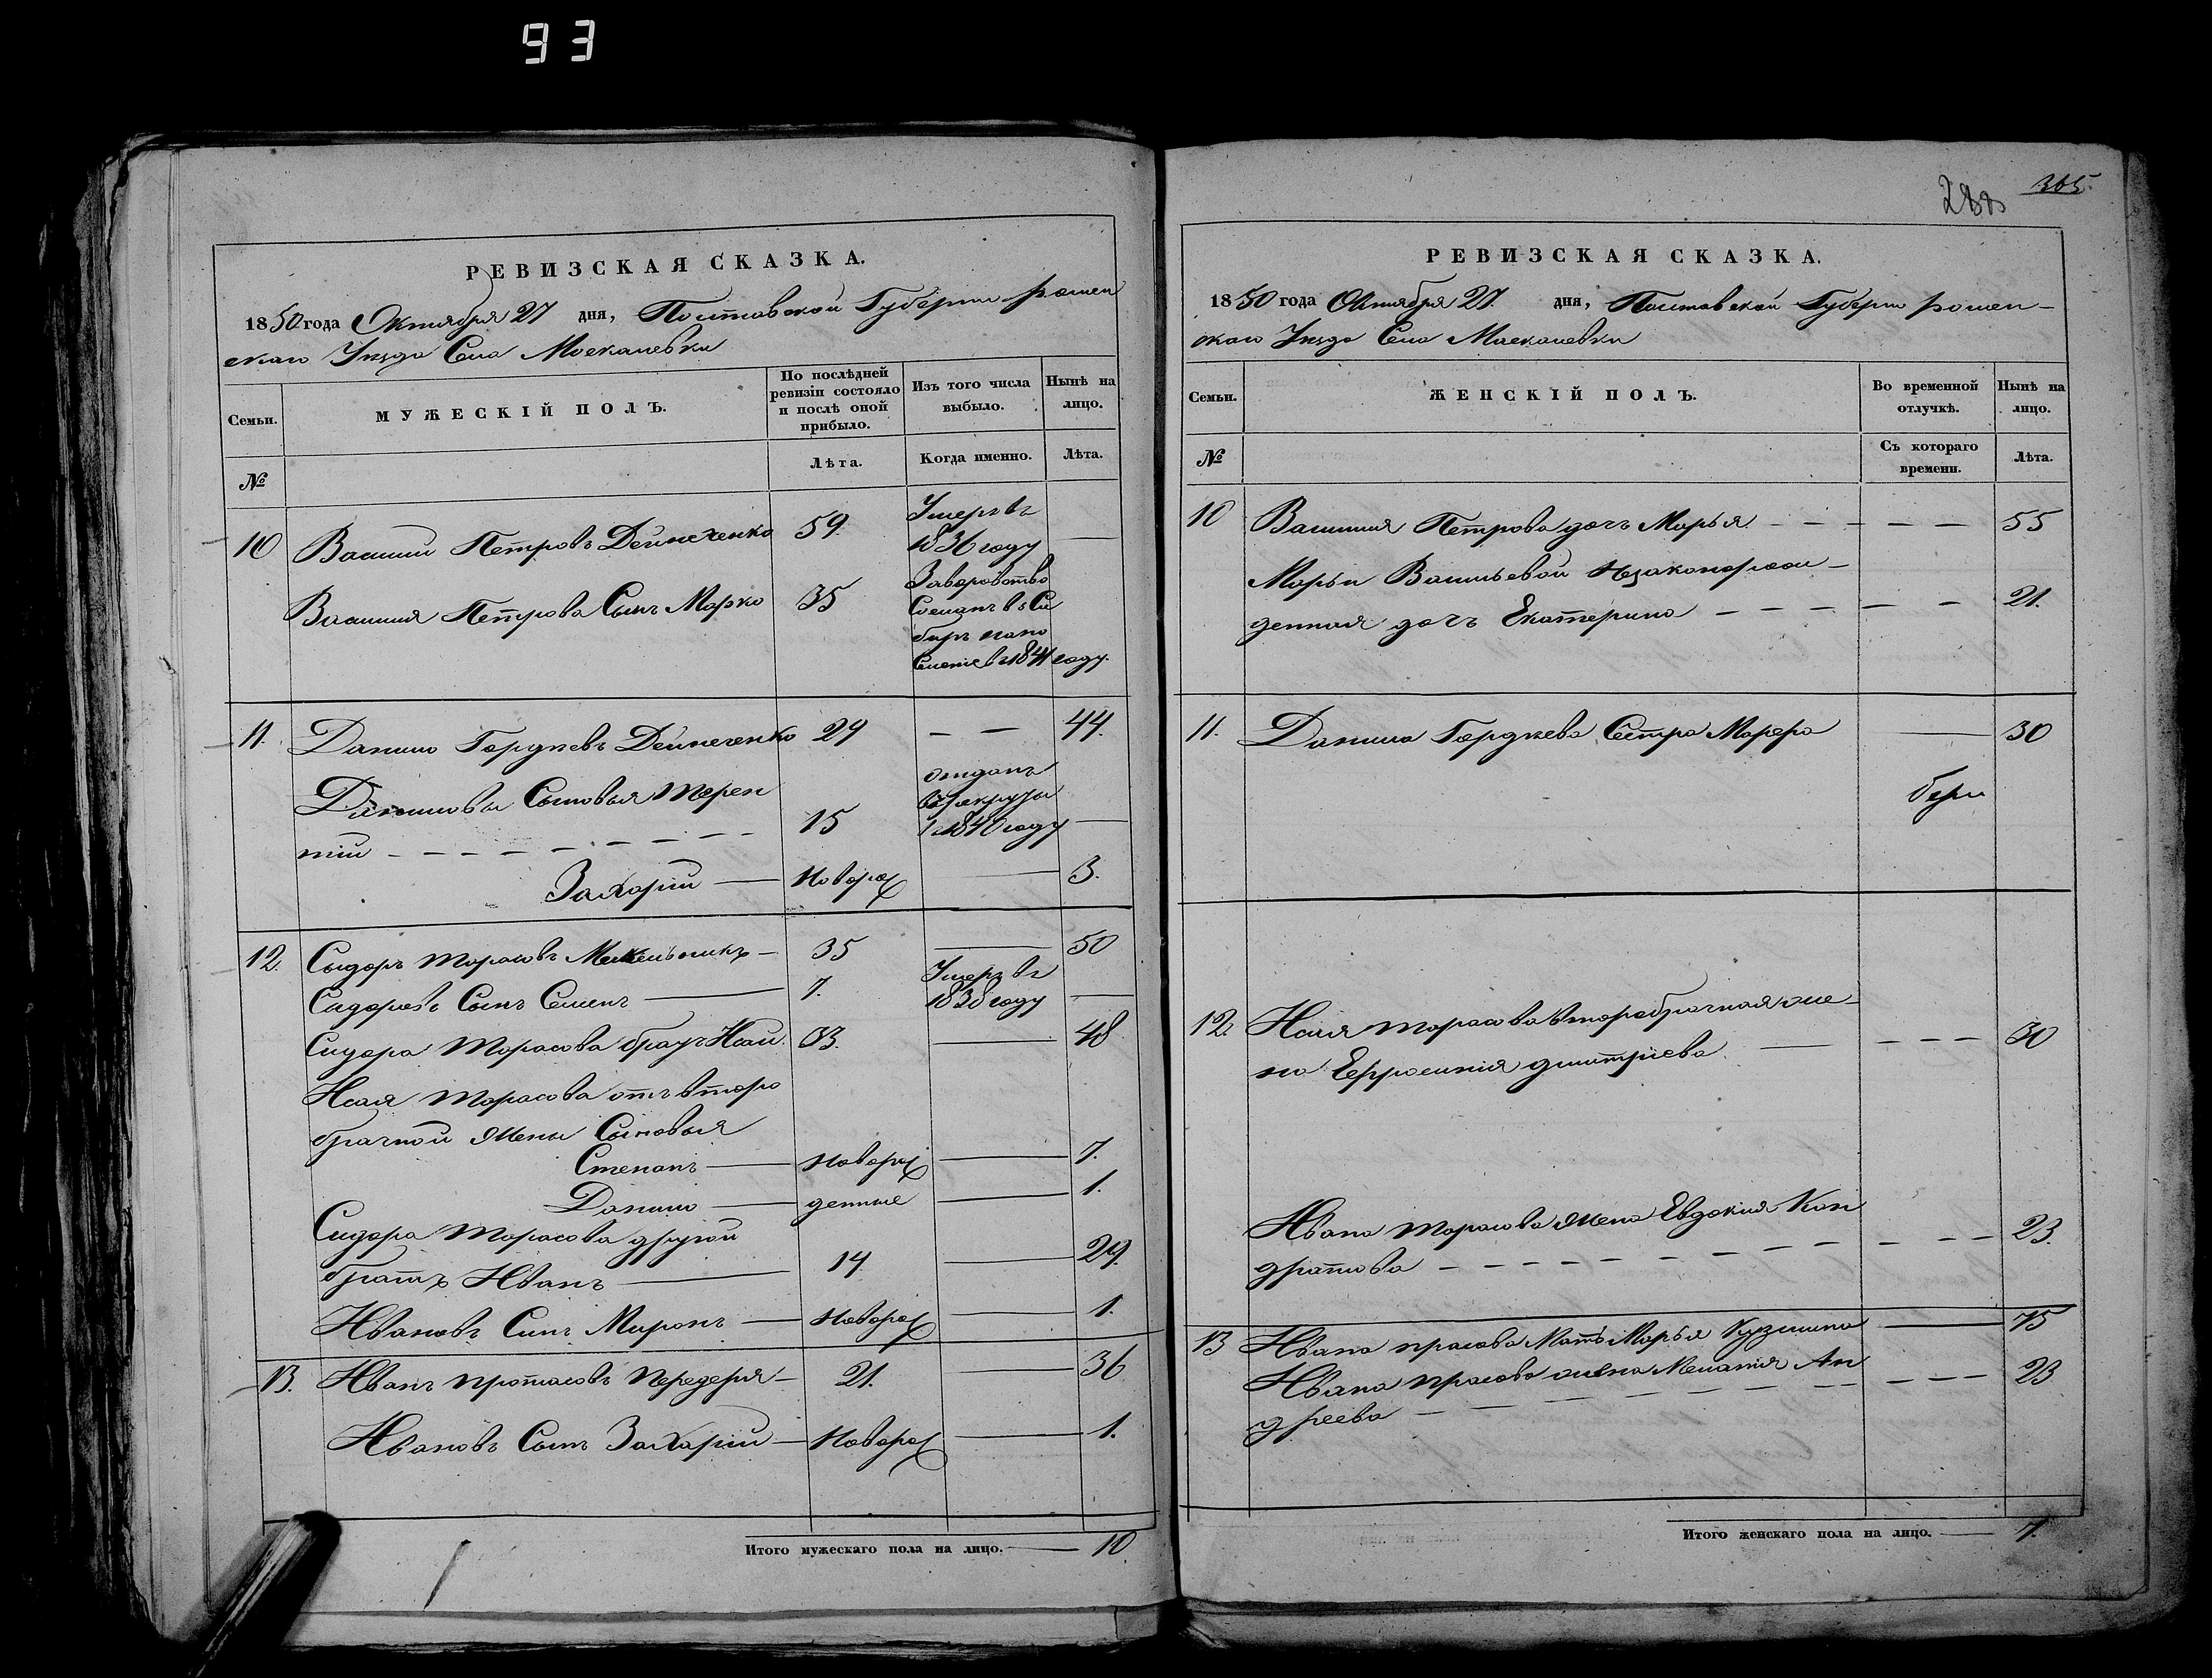 93
РЕВИЗСКАЯ СКАЗКА.
1850 года Октября 27 дня, Полтавской Губернии Ромен
скаго Уѣзда Села Москалевки
Семьи.
МУЖЕСКІЙ ПОЛЪ.
По послѣдней ревизіи состояло и послѣ оной прибыло.
Изъ того числа выбыло.
Нынѣ на лицо.
№
Лѣта.
Когда именно.
Лѣта.
10 Василий Петровъ Дейнеченко 59. Умеръ въ 1836 году
Василия Петрова Сынъ Марко 35 За воровство Сосланъ в Си
биръ на по
селение в 1841 году.
11. Данило Гордиевъ Дейнеченко 29 — — 44.
Даниловы Сыновья Терен
тий — — — 15 отданъ в рекруты 1840 году —
Захарий — новорож — 3.
12. Сыдоръ Тарасовъ — 35 — 50
Сидоровъ Сынъ Семенъ — 7. Умеръ въ 1838 году —
Сидора Тарасова братъ Исай. 33. — 48
Исая Тарасова отъ второ
брачной жены Сыновья
Степанъ — новорож — 7.
Данило — денные — 1.
Сидора Тарасова другой
братъ Иванъ — 14 — 29.
Ивановъ Синъ Миронъ — новорож — 1.
13. Иванъ Протасовъ Передерия — 21. — 36
Ивановъ Сынъ Захарий — новорож — 1.
Итого мужескаго пола на лицо. — 10
288
365.
РЕВИЗСКАЯ СКАЗКА.
1850 года Октября 27. дня, Полтавской Губерни Ромен—
скаго Уѣзда Села Москалевки
Семьи.
ЖЕНСКІЙ ПОЛЪ.
Во временной отлучкѣ.
Нынѣ на лицо.
№
Съ котораго времени.
Лѣта.
10 Василия Петрова дочъ Марья — — — — — 55
Марьи Васильевой незаконорож—
денная дочъ Екатерина — — — — — 21.
11. Данила Гордиева Сестра Марфа — 30
12. Исая Тарасова второбрачная же—
на Ефросиния Дмитриева — — — — 30
Ивана Тарасова жена Евдокия Кон
дратова — — — — — 23.
13 Ивана Прасова Мать Марья Кузмина — 75
Ивана Прасова жена Мелания Ан
дреева — — — — — 23
Итого женскаго пола на лицо. — 7.